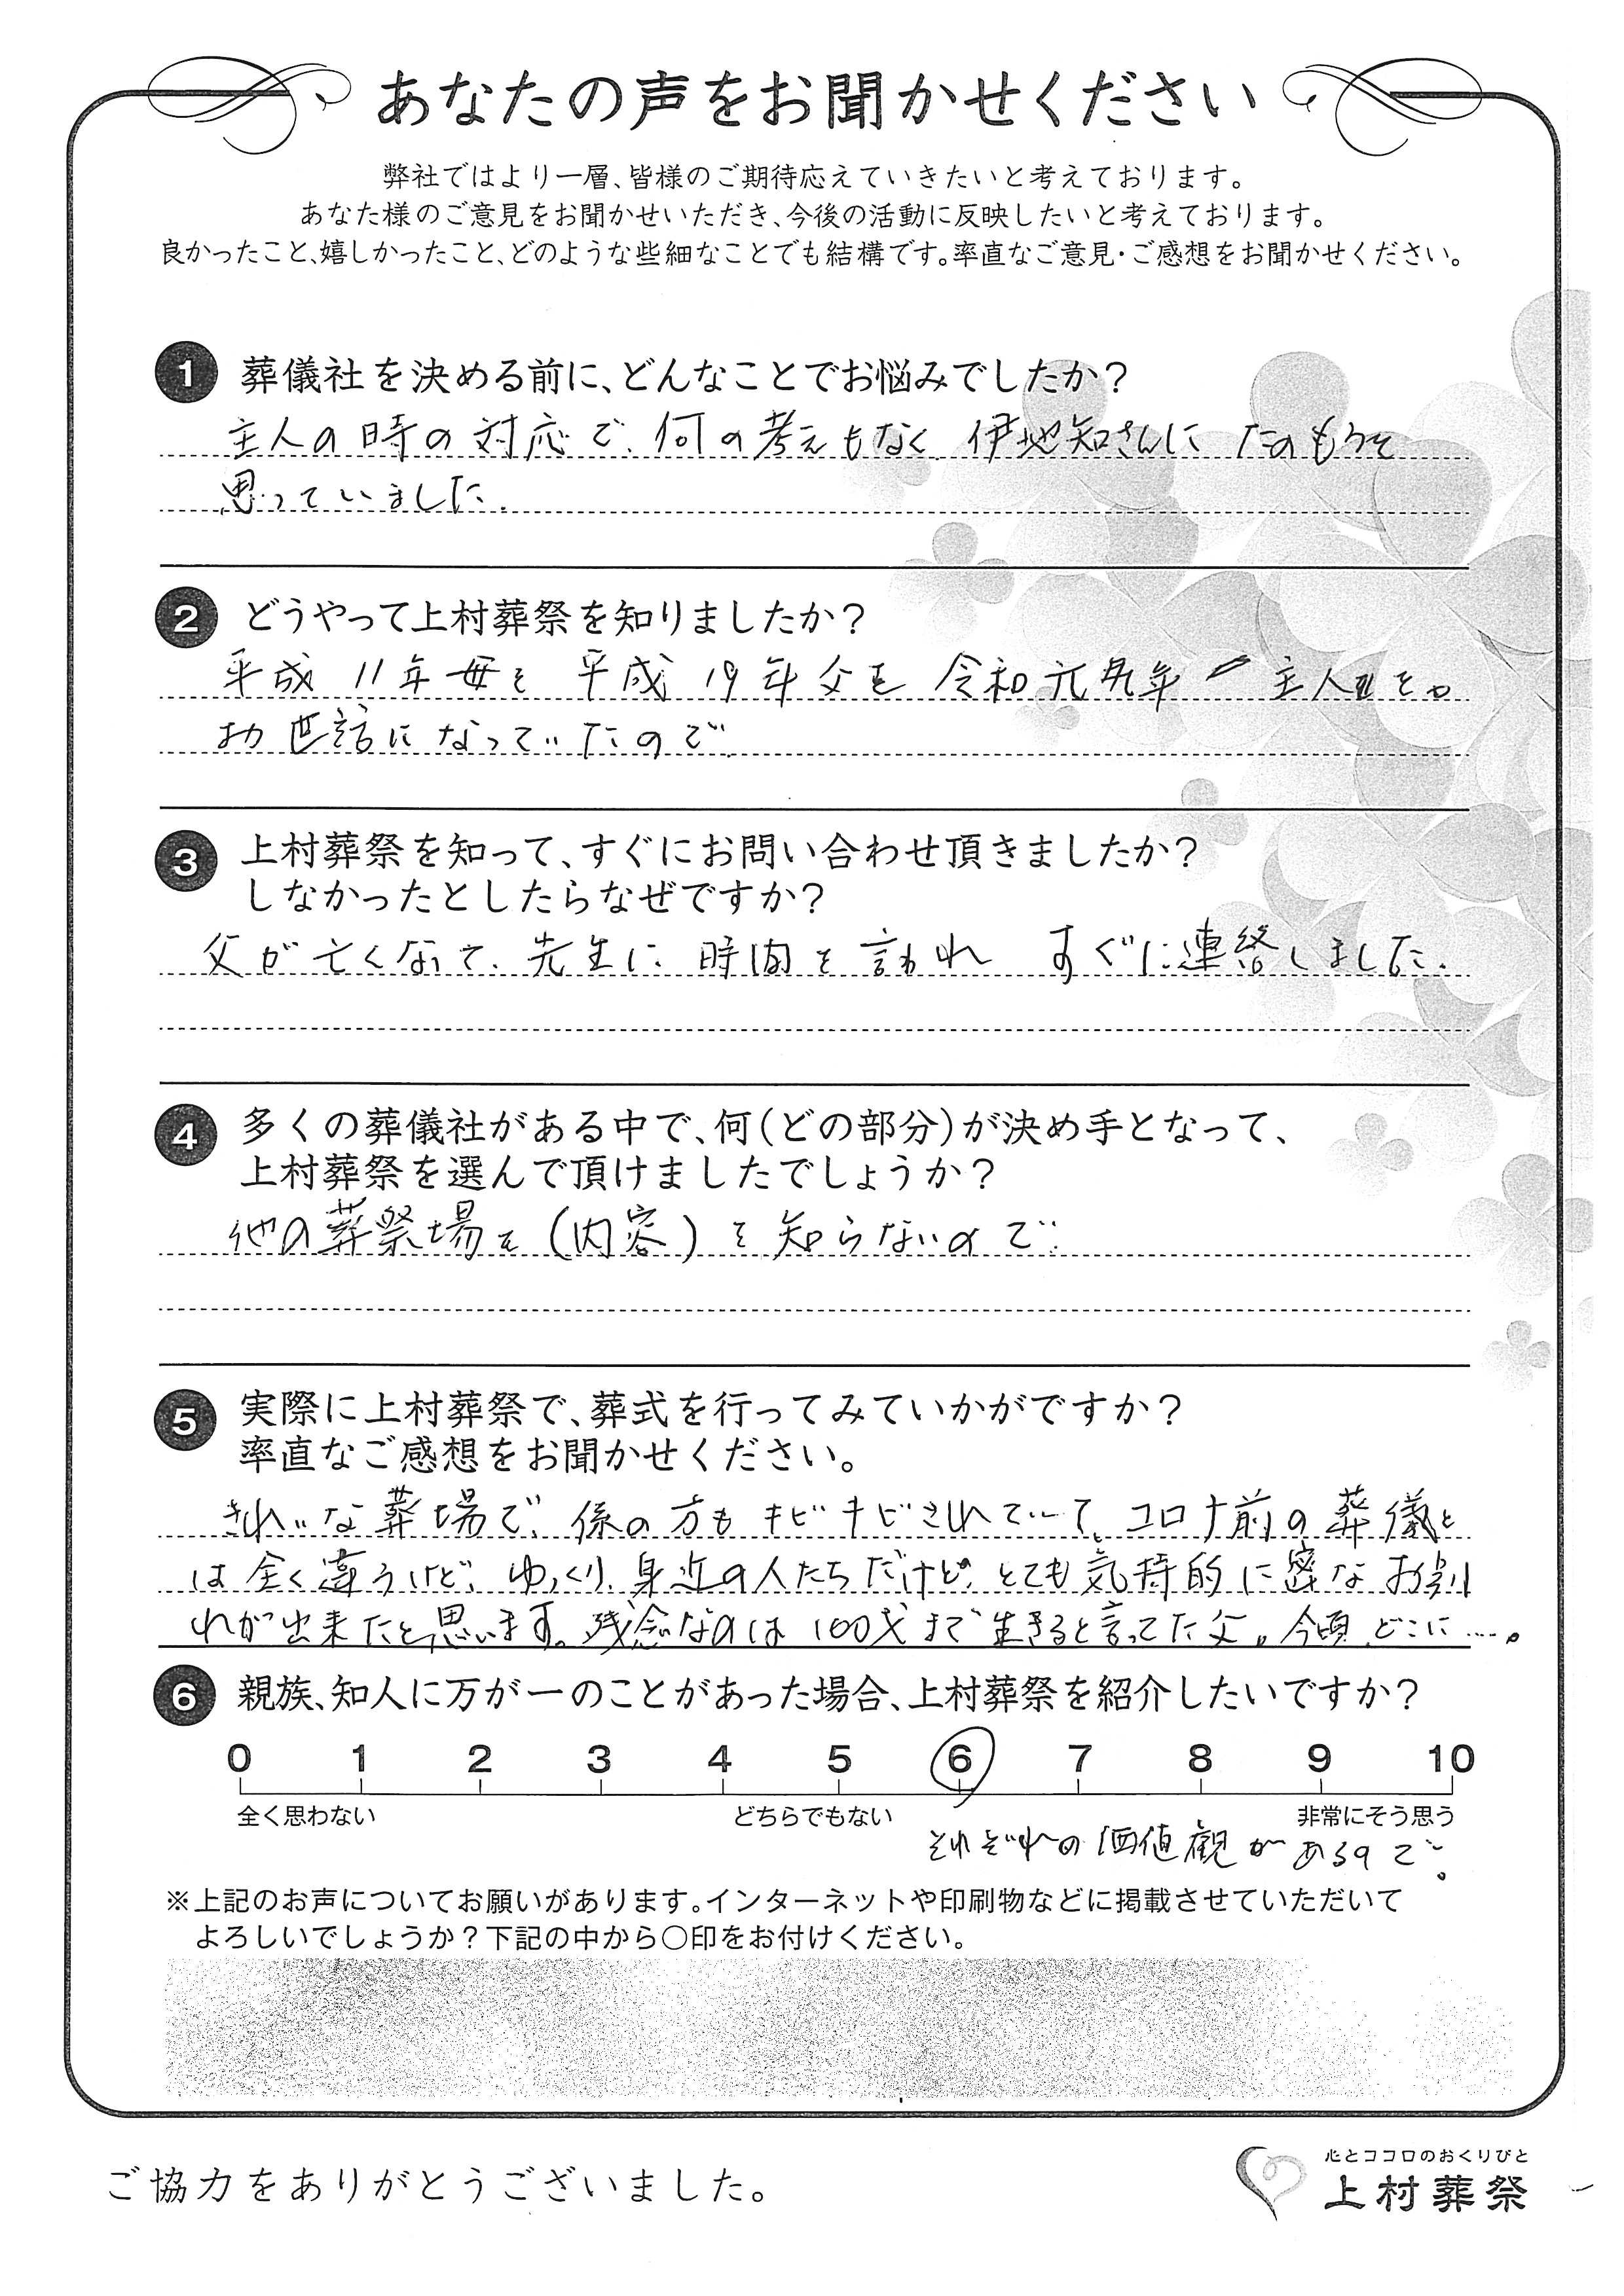 あなたの声をお聞かせください
弊社ではより一層、皆様のご期待応えていきたいと考えております。
あなた様のご意見をお聞かせいただき、今後の活動に反映したいと考えております。
良かったこと、嬉しかったこと、どのような些細なことでも結構です。率直なご意見・ご感想をお聞かせください。
1 葬儀社を決める前に、どんなことでお悩みでしたか?
主人の時の対応で、何の考えもなく、伊地知さんに たのもうと
思っていました。
2 どうやって上村葬祭を知りましたか?
平成 11年母を 平成 19年父を 令和元年 主人を。
お世話になっていたので。
3 上村葬祭を知って、すぐにお問い合わせ頂きましたか?
しなかったとしたらなぜですか?
父が亡くなって、先生に 時間を言われ すぐに連絡しました。
4 多くの葬儀社がある中で、何(どの部分)が決め手となって、
上村葬祭を選んで頂けましたでしょうか?
他の葬祭場を(内容)を知らないので。
5 実際に上村葬祭で、葬式を行ってみていかがですか?
率直なご感想をお聞かせください。
きれいな葬場で、係の方もキビキビされていて、コロナ前の葬儀と
は全く違うけど、ゆっくり、身近の人たちだけど、とても気持的に密なお別
れが出来たと思います。残念なのは100才まで生きると言ってた父。今頃、どこに…。
6 親族、知人に万が一のことがあった場合、上村葬祭を紹介したいですか?
0 1 2 3 4 5 6 7 8 9 10
全く思わない どちらでもない 非常にそう思う
それぞれの価値観があるので。
※上記のお声についてお願いがあります。インターネットや印刷物などに掲載させていただいて
よろしいでしょうか?下記の中から○印をお付けください。
ご協力をありがとうございました。
心とココロのおくりびと
上村葬祭